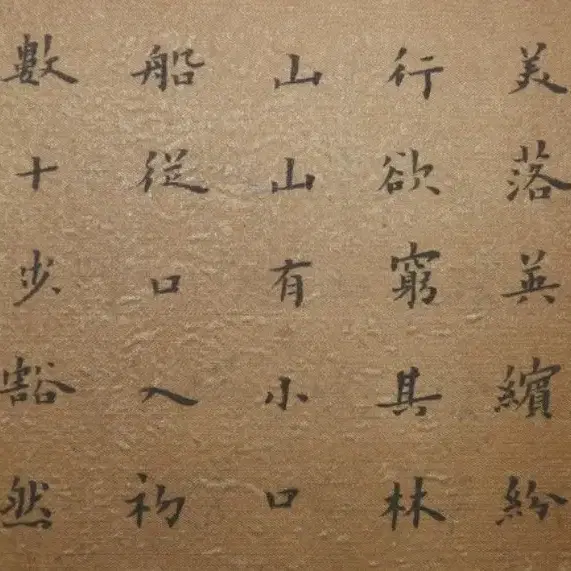 美落英繽紛
行欲窮其林
山山有小口
船從口入初
數十步豁然